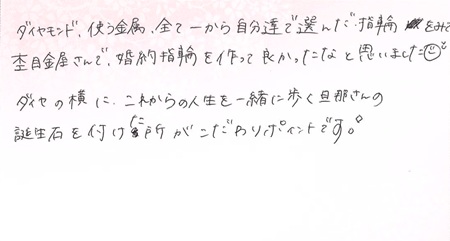 ダイヤモンド、使う金属、全て一から自分達で選んだ指輪をみて
杢目金屋さんで、婚約指輪を作って良かったなと思いました
ダイヤの横に、これからの人生を一緒に歩く旦那さんの
誕生石を付けた所がこだわりポイントです。